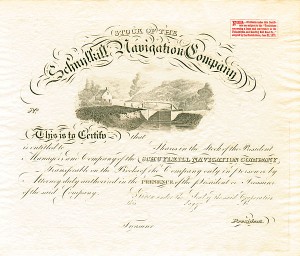 STOCK OF THE
Schuylkill Navigation Company
No.
This is to Certify that
is entitled to Shares in the Stock of the President
Managers and Company of the SCHUYLKILL NAVIGATION COMPANY,
Transferable on the Books of the Company only in person or by
Attorney duly authorized in the PRESENCE of the president or Treasurer
of the said Company. Given under the Seal of the said Corporation
this day
President
Treasurer